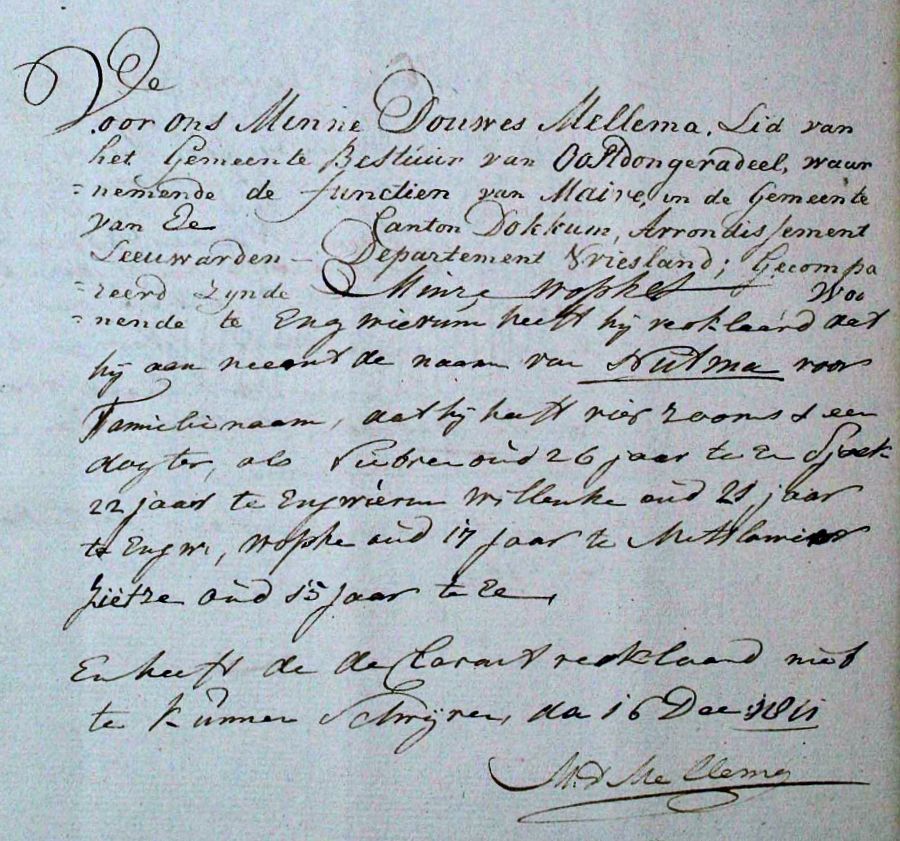 De
Voor ons Minne Douwes Mellema, Lid van
het Gemeente Bestuur van Oostdongeradeel, waar
=nemende de functien van Maire, in de Gemeente
van Ee Canton Dokkum, Arrondissement
Leeuwarden – Departement Vriesland; Gecompa
=reerd zynde Minze Wopkes Woo
=nende te Engwierum heeft hij verklaard dat
hij aan neemt de naam van Nutma voor
Familienaam, dat hij heeft vier zoons & een
dogter, als Siebren oud 26 jaar te Ee Sjoek
22 jaar te Engwierum Willemke oud 21 jaar
te Engwi, Wopke oud 17 jaar te Mettlawier
Zietze oud 15 jaar te Ee,
En heeft de declarant verklaard niet
te kunnen Schryven, da 16 Dec 1811
M.D Mellema